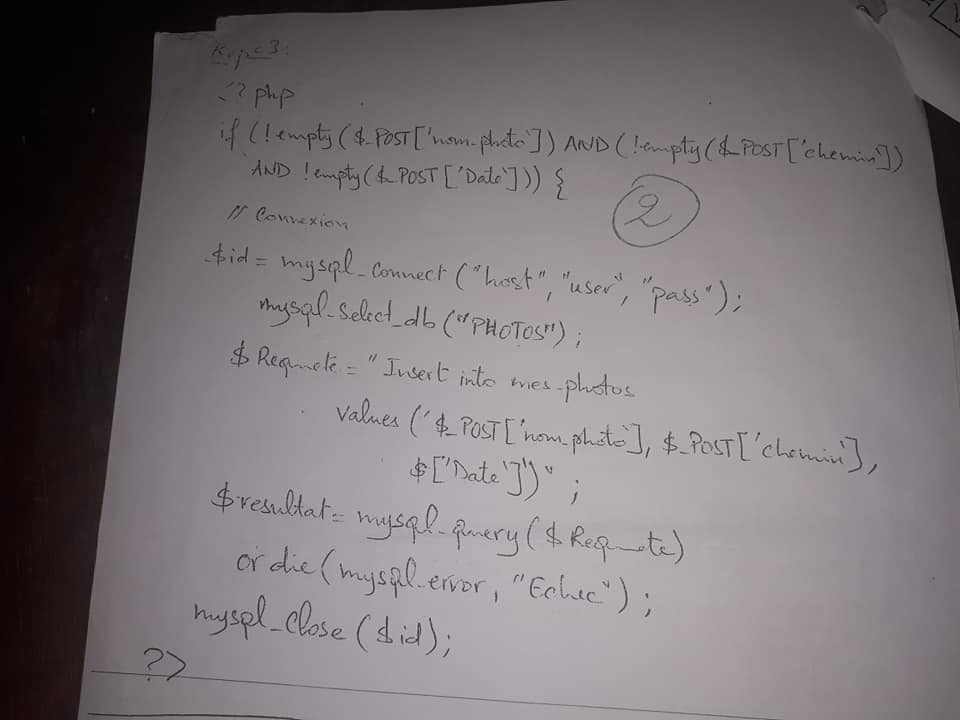 <?php
if (!empty($_POST['nom-photo']) AND (!empty($_POST['chemin'])
AND !empty($_POST['Date'])) {
2
// Connexion
$id = mysql_connect ("host", "user", "pass");
mysql_select_db ("PHOTOS");
$Requete = "Insert into mes-photos
values ('$_POST['nom_photo'], $_POST['chemin'],
$['Date']')" ;
$resultat = mysql_query ($Requete)
or die (mysql_error, "Echec");
mysql_close ($id);
?>